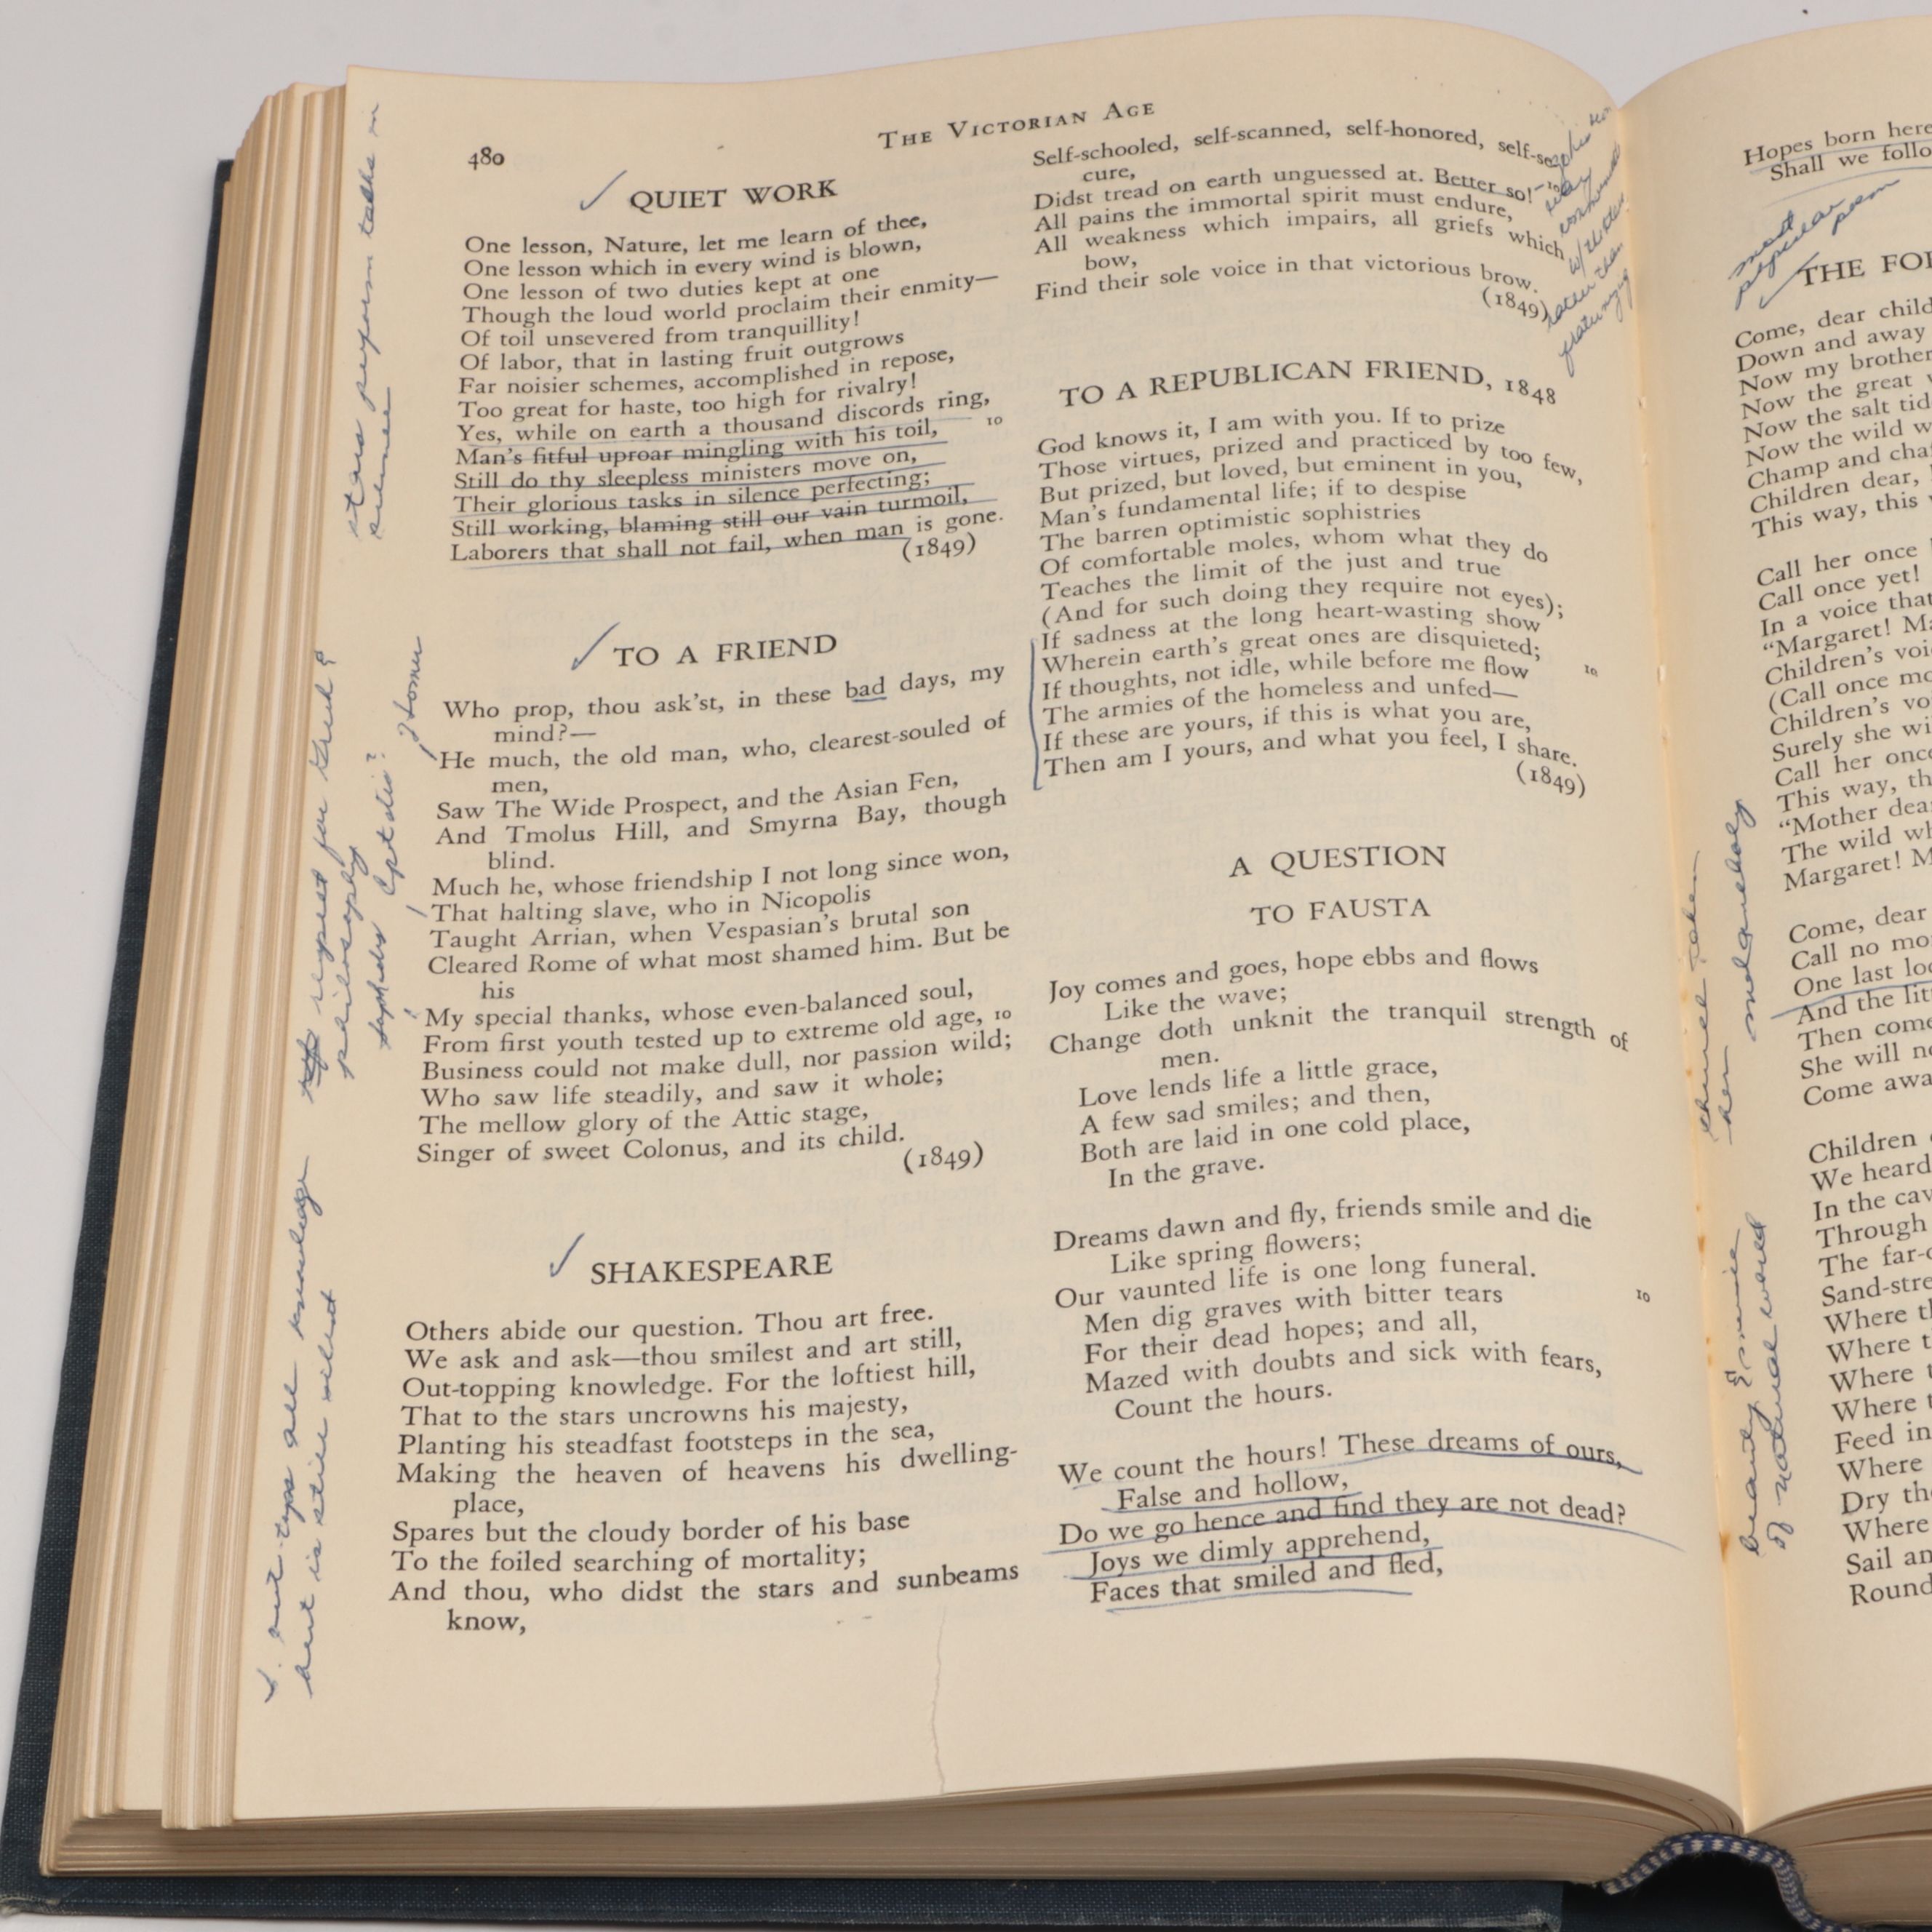 480
THE VICTORIAN AGE
QUIET WORK
One lesson, Nature, let me learn of thee,
One lesson which in every wind is blown,
One lesson of two duties kept at one
Though the loud world proclaim their enmity—
Of toil unsevered from tranquillity!
Of labor, that in lasting fruit outgrows
Far noisier schemes, accomplished in repose,
Too great for haste, too high for rivalry!
Yes, while on earth a thousand discords ring,
Man's fitful uproar mingling with his toil, 10
Still do thy sleepless ministers move on,
Their glorious tasks in silence perfecting;
Still working, blaming still our vain turmoil,
Laborers that shall not fail, when man is gone.
(1849)
stars perform tasks in
silence
TO A FRIEND
Who prop, thou ask'st, in these bad days, my
mind?—
He much, the old man, who, clearest-souled of
men,
Saw The Wide Prospect, and the Asian Fen,
And Tmolus Hill, and Smyrna Bay, though
blind.
Much he, whose friendship I not long since won,
That halting slave, who in Nicopolis
Taught Arrian, when Vespasian's brutal son
Cleared Rome of what most shamed him. But be
his
My special thanks, whose even-balanced soul,
From first youth tested up to extreme old age, 10
Business could not make dull, nor passion wild;
Who saw life steadily, and saw it whole;
The mellow glory of the Attic stage,
Singer of sweet Colonus, and its child.
(1849)
Homer
respect for Greek
philosophy
SHAKESPEARE
Others abide our question. Thou art free.
We ask and ask—thou smilest and art still,
Out-topping knowledge. For the loftiest hill,
That to the stars uncrowns his majesty,
Planting his steadfast footsteps in the sea,
Making the heaven of heavens his dwelling-
place,
Spares but the cloudy border of his base
To the foiled searching of mortality;
And thou, who didst the stars and sunbeams
know,
S. out-tops all knowledge
but is still silent
Self-schooled, self-scanned, self-honored, self-se-
cure,
Didst tread on earth unguessed at. Better so! 10
All pains the immortal spirit must endure,
All weakness which impairs, all griefs which
bow,
Find their sole voice in that victorious brow.
(1849)
w/
rather than
TO A REPUBLICAN FRIEND, 1848
God knows it, I am with you. If to prize
Those virtues, prized and practiced by too few,
But prized, but loved, but eminent in you,
Man's fundamental life; if to despise
The barren optimistic sophistries
Of comfortable moles, whom what they do
Teaches the limit of the just and true
(And for such doing they require not eyes);
If sadness at the long heart-wasting show
Wherein earth's great ones are disquieted; 10
If thoughts, not idle, while before me flow
The armies of the homeless and unfed—
If these are yours, if this is what you are,
Then am I yours, and what you feel, I share.
(1849)
A QUESTION
TO FAUSTA
Joy comes and goes, hope ebbs and flows
Like the wave;
Change doth unknit the tranquil strength of
men.
Love lends life a little grace,
A few sad smiles; and then,
Both are laid in one cold place,
In the grave.
Dreams dawn and fly, friends smile and die
Like spring flowers;
Our vaunted life is one long funeral.
Men dig graves with bitter tears 10
For their dead hopes; and all,
Mazed with doubts and sick with fears,
Count the hours.
We count the hours! These dreams of ours,
False and hollow,
Do we go hence and find they are not dead?
Joys we dimly apprehend,
Faces that smiled and fled,
Hopes born here
Shall we follo
most
popular
poem
THE FOR
Come, dear child
Down and away
Now my brother
Now the great
Now the salt tid
Now the wild w
Champ and cha
Children dear,
This way, this
Call her once
Call once yet!
In a voice that
"Margaret! Ma
Children's voi
(Call once mo
Children's vo
Surely she wi
Call her once
This way, th
"Mother dea
The wild wh
Margaret! M
Come, dear
Call no mo
One last loo
And the litt
Then come
She will no
Come awa
Children
We heard
In the cav
Through
The far-o
Sand-stre
Where th
Where t
Where t
Where t
Feed in
Where
Dry the
Where
Sail an
Round
her melancholy
beauty &
of natural world